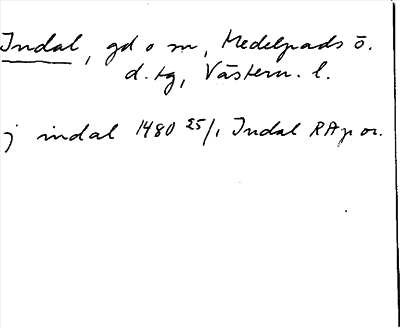 Indal, gd o sn, Medelpads ö.
d. tg, Västern. l.
j indal 1480 25/1 Indal RAp or.